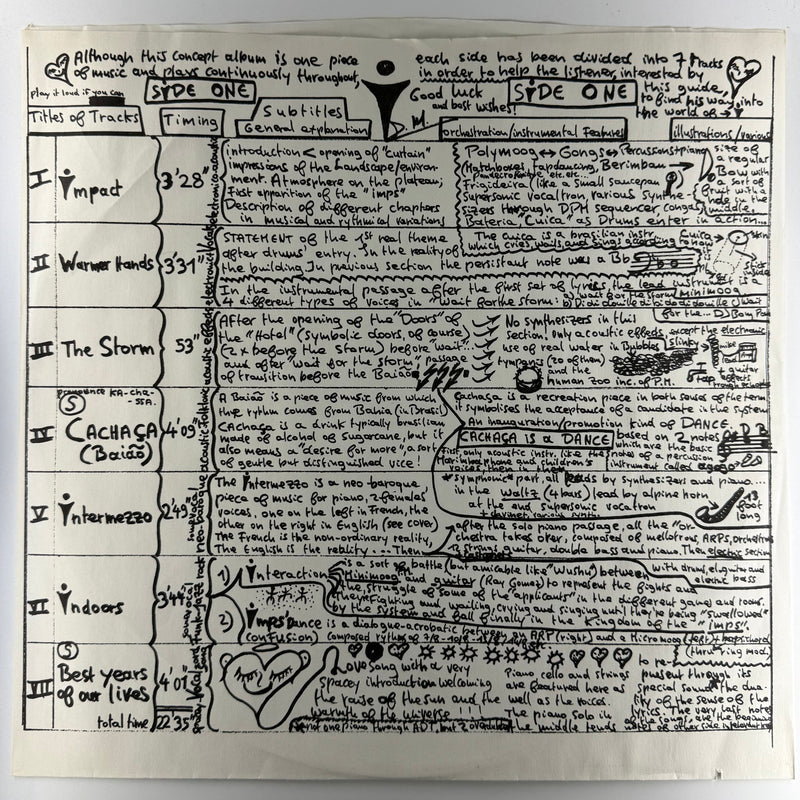 Although this concept album is one piece
of music and plays continuously throughout,
each side has been divided into 7 tracks
in order to help the listener, interested by
this guide,
to find his way into
the world of →
play it loud if you can
SIDE ONE
Good luck
and best wishes!
D. M.
SIDE ONE
Titles of Tracks
Timing
Subtitles
General explanation
orchestration/instrumental Features
illustrations/various
I
impact
3'28"
introduction < opening of "curtain"
impressions of the Landscape/environ-
ment. Atmosphere on the plateau;
First apparition of the "imps"
Description of different chapters
in musical and rythmical variations
Polymoog ↔ Gongs ↔ Percussions+piano
Matchboxes, tapdancing, Berimbau →
Frigideira (like a small saucepan
Supersonic vocaltron, various synthe-
sizers through DiM sequencer, Congas
Bateria, "Cuica" as Drums enter in action...
size of
a regular
Bow with
a sort of
fruit with a
hole in the
middle.
II
Warmer Hands
3'31"
STATEMENT of the 1st real theme
after drums' entry. In the reality of
the building. In previous section the persistant note was a Bb
The Cuica is a brasilian instr.
which cries, wails and sings according to how
Cuica →
skin
stick
inside
In the instrumental passage after the first set of lyrics, the lead instrument is a
4 different types of voices in "Wait for the storm: a) wait for the storm Minimoog
for the...
III
The Storm
53"
acoustic effects
After the opening of the "Doors" of
the "Hotel" (symbolic doors, of course)
(2x before the Storm) before "wait...
and after "wait for the storm" passage
of transition before the Baiaõ
No synthesizers in this
section, only acoustic effects, except the electronic
use of real water in Bubbles
Slinky
tympanis (20 of them)
and the
human zoo inc. of P.M.
guitar
effects
IV
pronounce KA-cha-
SSA.
S
CACHAÇA
(Baiaõ)
4'09"
A Baiaõ is a piece of music from which
the rythm comes from Bahia (in Brasil)
CACHAÇA is a drink typically brasilian
made of alcohol of sugarcane, but it
also means a "desire for more", a sort
of gentle but distinguished vice!
Cachaça is a recreation piece in both senses of the term
it symbolises the acceptance of a candidate in the system
An inauguration/promotion kind of DANCE.
CACHAÇA is a DANCE
based on 2 notes D B
which are the basic
notes of a percussion
instrument called agogo
first, only acoustic instr. like the
Marimbaphone and children's
voices then in the
"symphonic" part, all leads by synthesizers and piano...
in the Waltz (4 bars) lead by alpine horn
at the end supersonic vocaltron
13
foot
long
V
intermezzo
2'49"
neo-baroque
The intermezzo is a neo-baroque
piece of music for piano, 2 females'
voices, one on the left in French, the
other on the right in English (see cover)
The French is the non-ordinary reality,
The English is the reality... Then
after the solo piano passage, all the "or-
chestra takes over, composed of mellotrons, ARPS, Orchestron
strings, guitar, double bass and piano. Then electric section
with drums, el. guitar and
electric bass
VI
indoors
3'44"
funk-Jazz rock
1) interaction
is a sort of battle (but amicable like "Wushu") between
Minimoog and guitar (Ray Gomez) to represent the fights and
the struggle of some of the "applicants" in the different games and rooms.
they're fighting and wailing, crying and singing until they're being "swallowed"
by the system and fall finally in the Kingdom of the "imps".
2) imps' Dance
(confusion)
is a dialogue-acrobatic between
an ARP (right) and a Micromoog (left) + harpsichord
(thru ring mod.
VII
S
Best years
of our lives
4'01"
Love song with a very
Spacey introduction welcoming
the raise of the sun and the
warmth of the universe!!!
not one piano through ADT, but 2 overdubs
Piano cello and strings
are featured here as
well as the voices.
The piano solo in
the middle tends
to re-
present through its
special sound the dua-
lity of the sense of the
lyrics. The very last notes
of the songs are the beginning
notes of other side
total time
22'35"